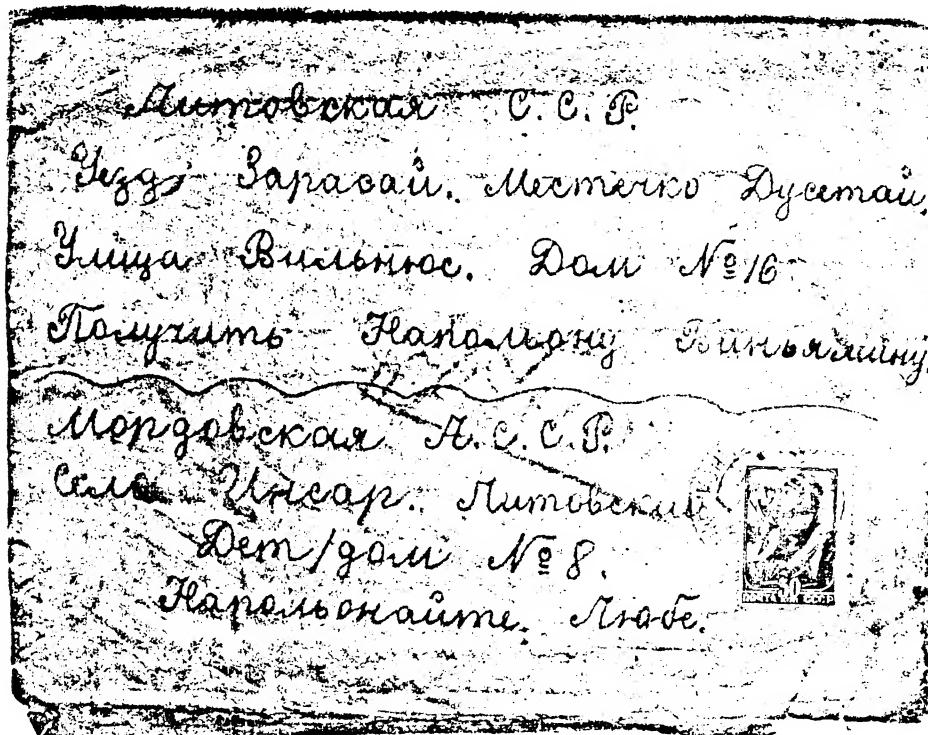 Литовская С.С.Р.
Уезд Зарасай. Местечко Дусетай.
Улица Вильнюс. Дом № 16
Получить Напольону Виньямину.
Мордовская А.С.С.Р.
Село Инсар. Литовский
Дет/дом № 8.
Напольонайте. Любе.
ПОЧТА СССР